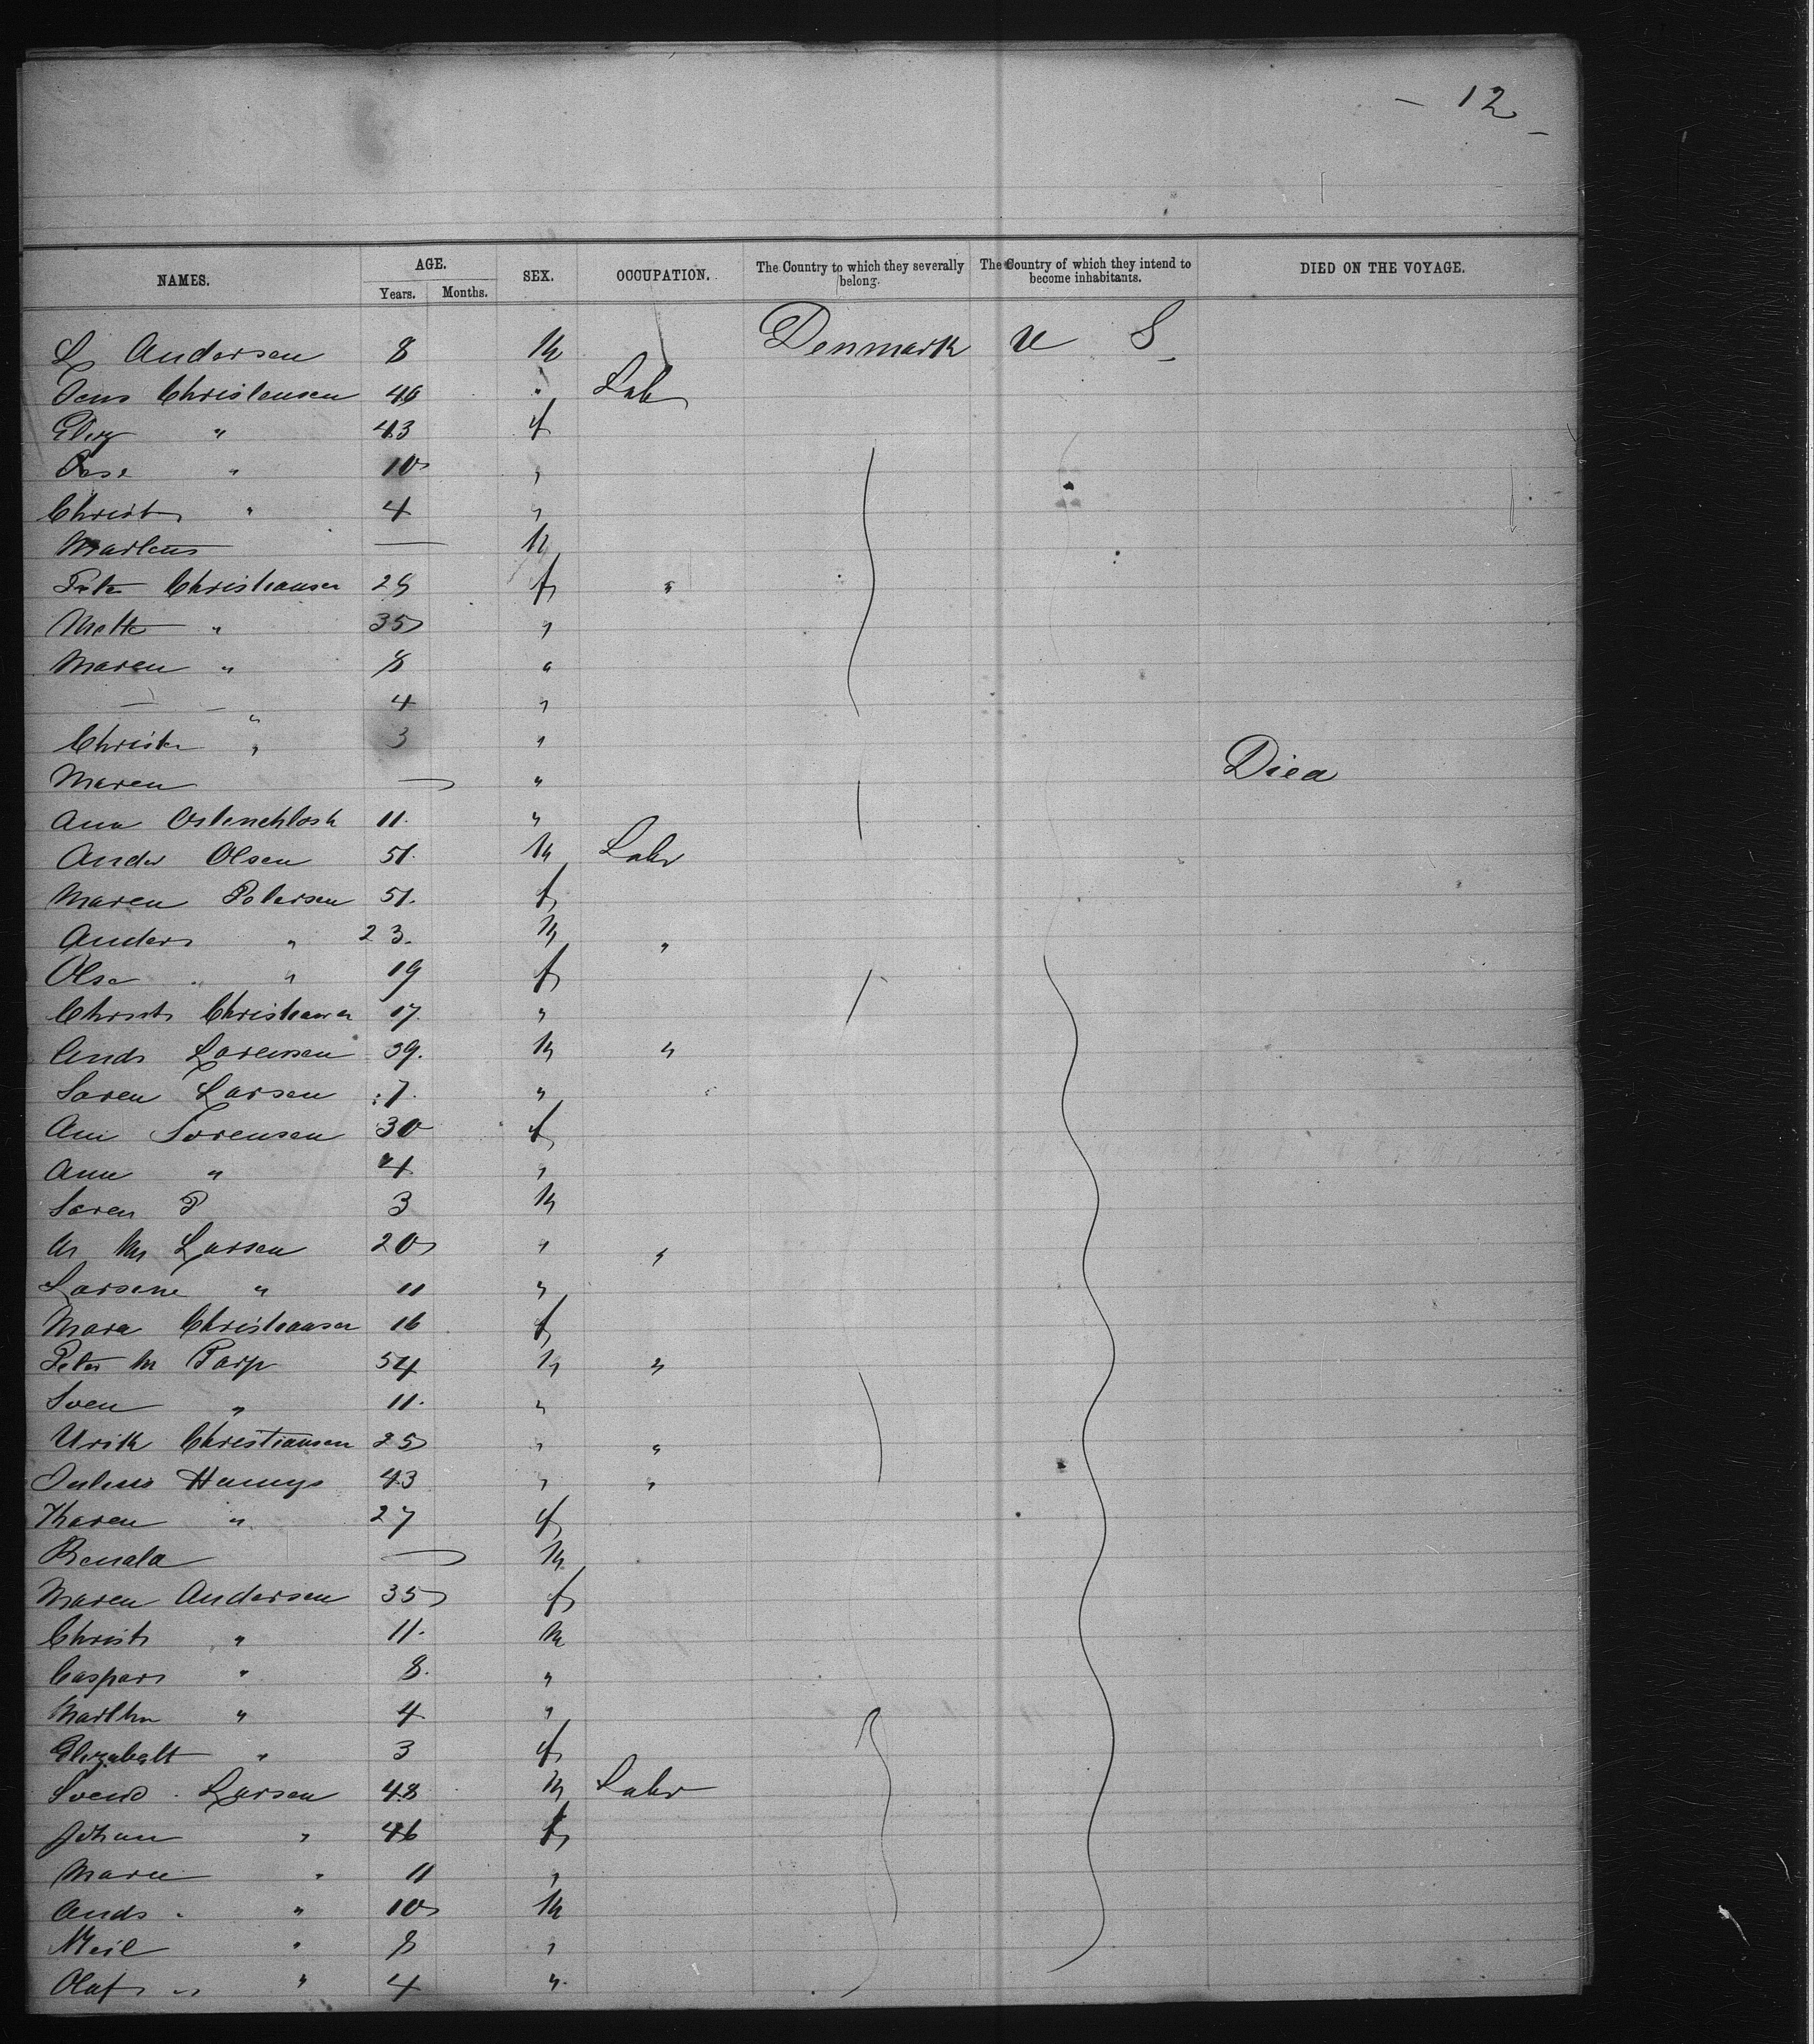 - 12 -
NAMES. AGE. SEX. OCCUPATION. The Country to which they severally belong. The Country of which they intend to become inhabitants. DIED ON THE VOYAGE.
Years. Months.
L Andersen 8 M Denmark U S
Jens Christensen 40 " Lab
Eliz " 43 f
10 "
Christ " 4 "
Martens — M
Peter Christiansen 29 f "
Mette " 35 "
Maren " 8 "
— — " 4 "
Christn " 3 "
Maren — " Died
Ann 11. "
Ander Olsen 51. M Labr
Maren Petersen 51. f
Anders " 23. M "
Olse " " 19 f
Christ Christiansen 17. "
Ands Lorensen 39. M "
Soren Larsen 7. "
Ann Sorensen 30 f
Ann " 4 "
Soren P 3 M
M Larsen 20 " "
Larsine " 11 "
Mara Christiansen 16 f
Peter M Parp 54 M "
Sven " 11. "
Urik Christiansen 25 " "
Julius 43 " "
Karen " 27 f
Renala — M
Maren Andersen 35 f
Christ " 11. M
Caspars " 8. "
Marthn " 4 "
Elizabett " 3 f
Svend. Larsen 48 M Labr
Johan " 46 f
Marie " 11 "
Ands. " 10 M
Neil " 8 "
Olaf " " 4 "